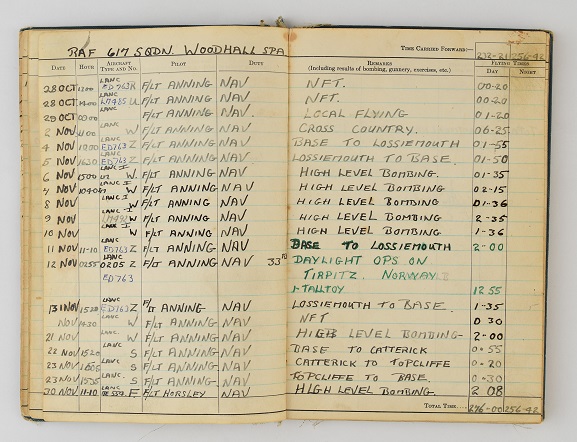 RAF 617 SQDN. WOODHALL SPA
TIME CARRIED FORWARD:— 232-21 256-42
DATE HOUR AIRCRAFT TYPE AND NO. PILOT DUTY REMARKS (Including results of bombing, gunnery, exercises, etc.) FLYING TIMES DAY NIGHT
28 OCT LANC ED763 F/LT ANNING NAV NFT. 00-20
28 OCT LANC F/LT ANNING NAV NFT. 00-20
29 OCT F/LT ANNING NAV LOCAL FLYING 01-20
2 NOV LANC W F/LT ANNING NAV CROSS COUNTRY. 06-25
4 NOV LANC ED763 Z F/LT ANNING NAV BASE TO LOSSIEMOUTH 01-55
5 NOV LANC ED763 Z F/LT ANNING NAV LOSSIEMOUTH TO BASE 01-50
6 NOV 1500 LANC I W F/LT ANNING NAV HIGH LEVEL BOMBING. 01-35
7 NOV LANC I W. F/LT ANNING NAV HIGH LEVEL BOMBING 02-15
8 NOV LANC I W F/LT ANNING NAV HIGH LEVEL BOMBING 01-36
9 NOV LANC I W F/LT ANNING NAV HIGH LEVEL BOMBING 2-35
10 NOV LANC I W F/LT ANNING NAV HIGH LEVEL BOMBING 1-36
11 NOV 11-10 LANC ED763 Z F/LT ANNING NAV BASE TO LOSSIEMOUTH 2-00
12 NOV 0255 LANC Z F/LT ANNING NAV 33RD DAYLIGHT OPS ON
ED763 TIRPITZ. NORWAY
1-TALLBOY 12 55
13 NOV 1520 LANC ED763 Z F/LT ANNING NAV LOSSIEMOUTH TO BASE. 1-35
NOV 1430 LANC W F/LT ANNING NAV NFT 0 30
21 NOV LANC W F/LT ANNING. NAV HIGH LEVEL BOMBING 2-00
22 NOV 1520 LANC S F/LT ANNING. NAV BASE TO CATTERICK 0-55
23 NOV LANC S F/LT ANNING. NAV CATTERICK TO TOPCLIFFE 0-20
23 NOV LANC S F/LT ANNING. NAV TOPCLIFFE TO BASE. 0-30
NOV 11-10 LANC F F/LT HORSLEY NAV HIGH LEVEL BOMBING 2 08
TOTAL TIME 276-00 256-42